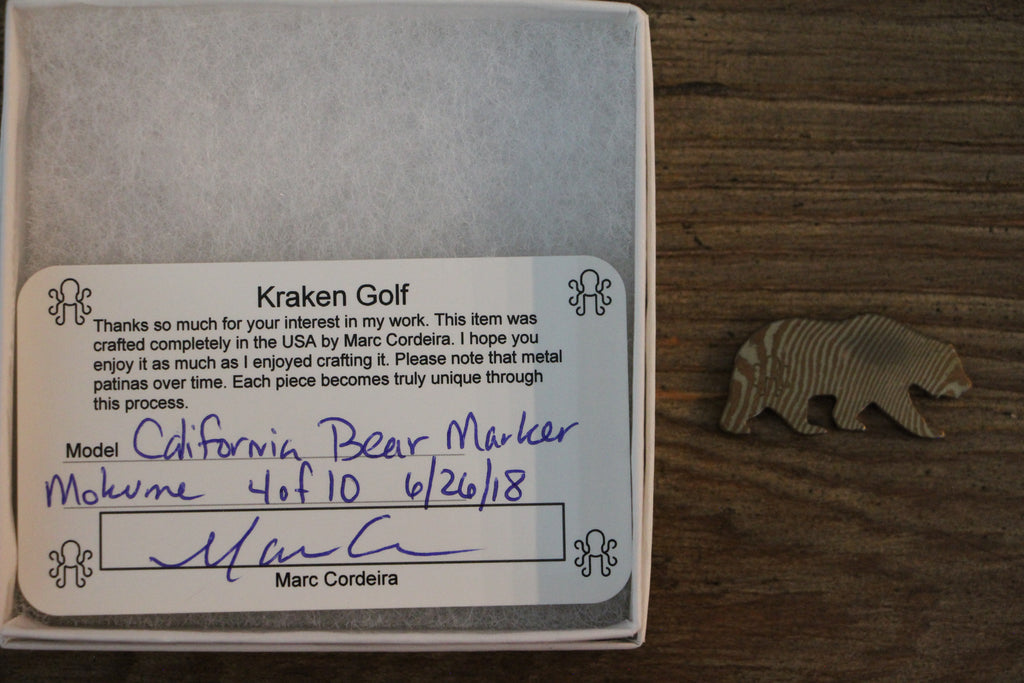 Kraken Golf
Thanks so much for your interest in my work. This item was
crafted completely in the USA by Marc Cordeira. I hope you
enjoy it as much as I enjoyed crafting it. Please note that metal
patinas over time. Each piece becomes truly unique through
this process.
Model California Bear Marker
Mokume 4 of 10 6/26/18
Marc C
Marc Cordeira